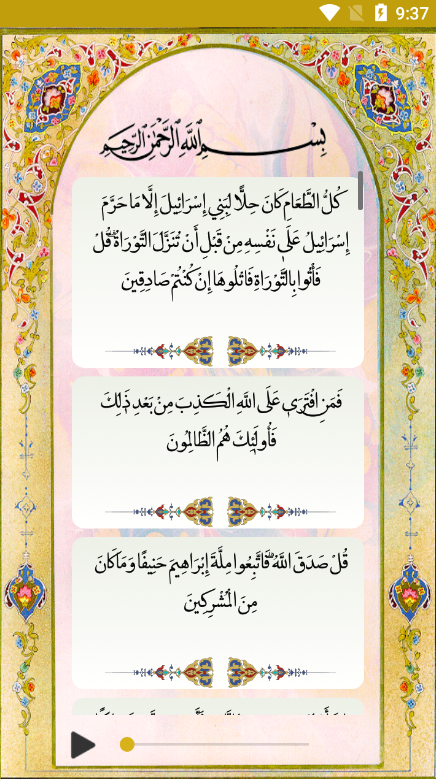 9:37
بِسْمِ اللَّهِ الرَّحْمَٰنِ الرَّحِيمِ
كُلُّ الطَّعَامِ كَانَ حِلًّا لِبَنِي إِسْرَائِيلَ إِلَّا مَا حَرَّمَ
إِسْرَائِيلُ عَلَىٰ نَفْسِهِ مِنْ قَبْلِ أَنْ تُنَزَّلَ التَّوْرَاةُ ۗ قُلْ
فَأْتُوا بِالتَّوْرَاةِ فَاتْلُوهَا إِنْ كُنْتُمْ صَادِقِينَ
فَمَنِ افْتَرَىٰ عَلَى اللَّهِ الْكَذِبَ مِنْ بَعْدِ ذَٰلِكَ
فَأُولَٰئِكَ هُمُ الظَّالِمُونَ
قُلْ صَدَقَ اللَّهُ ۗ فَاتَّبِعُوا مِلَّةَ إِبْرَاهِيمَ حَنِيفًا وَمَا كَانَ
مِنَ الْمُشْرِكِينَ